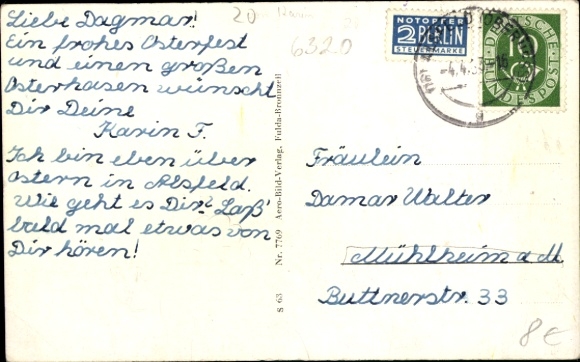 Liebe Dagmar!
Ein frohes Osterfest
und einen großen
Osterhasen wünscht
Dir Deine
Karin F.
Ich bin eben über
Ostern in Alsfeld.
Wie geht es Dir? Laß'
bald mal etwas von
Dir hören!
20
6320
S 63 Nr. 7769 Aero-Bild-Verlag, Fulda-Bronnzell
NOTOPFER
2 BERLIN
STEUERMARKE
4.4.53
DEUTSCHE
10
BUNDESPOST
Fräulein
Damar Walter
Mühlheim a M
Buttnerstr. 33
8€